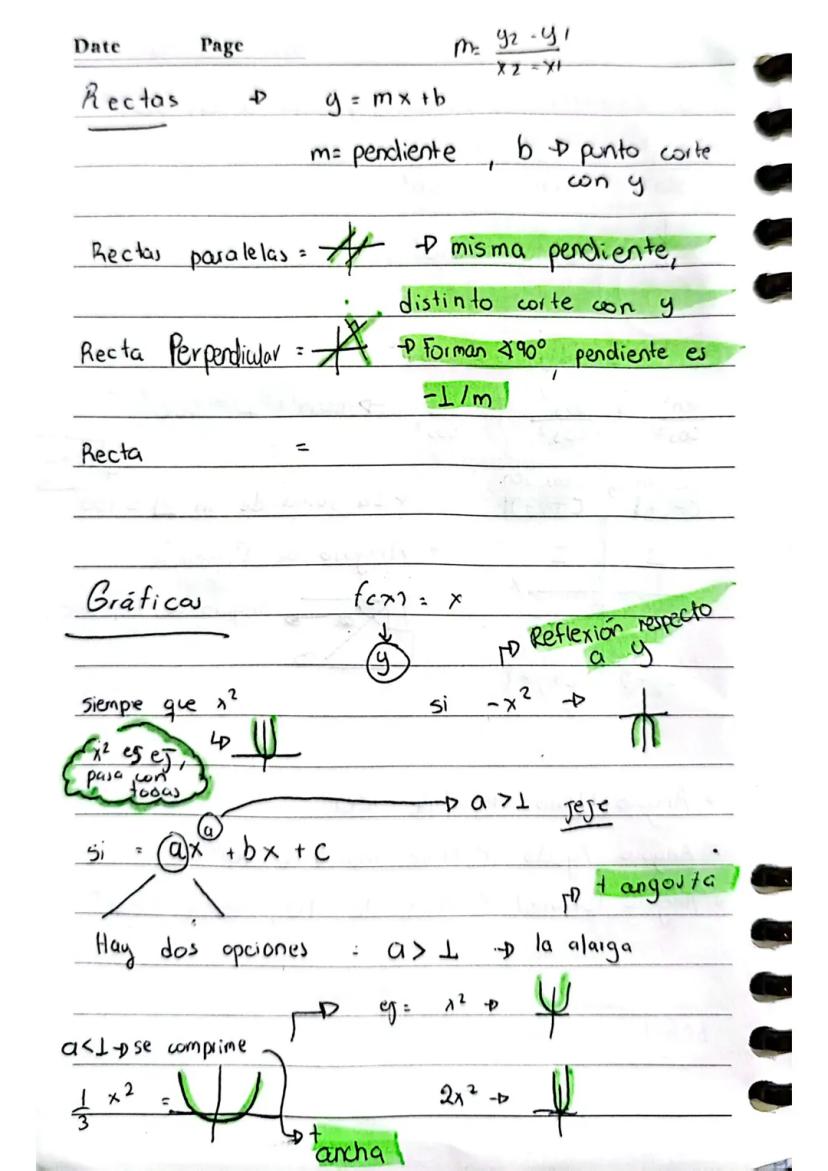 Date Page m= y2 - y1 / x2 - x1
Rectas → y = mx + b
m= pendiente , b → punto corte
con y
Rectas paralelas = → misma pendiente,
distinto corte con y
Recta Perpendicular = → Forman ∢90°, pendiente es
-1/m
Recta =
Gráficas f(x) = x
↓
y
→ Reflexión respecto
a y
siempre que x² si -x² →
x² es ej,
pasa con
todas
→ a > 1 jeje
si = ax^a + bx + c
→ + angosta
Hay dos opciones : a > 1 → la alarga
→ ej = x² →
a<1 → se comprime
1/3 x² = 2x² →
→ +
ancha